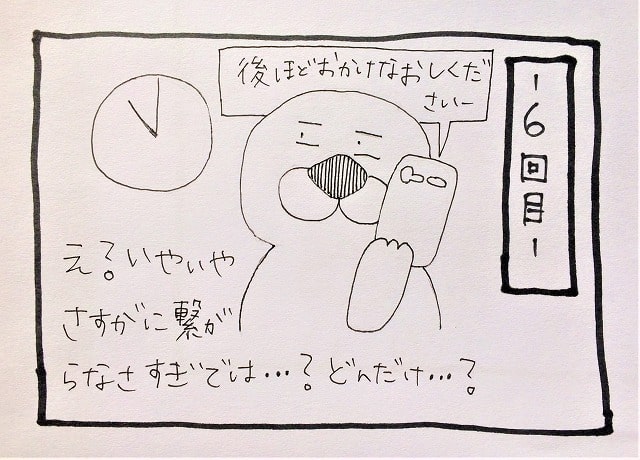 -6回目-
後ほどおかけなおしくだ
さいー
え?いやいや
さすがに繋が
らなさすぎでは…?どんだけ…?